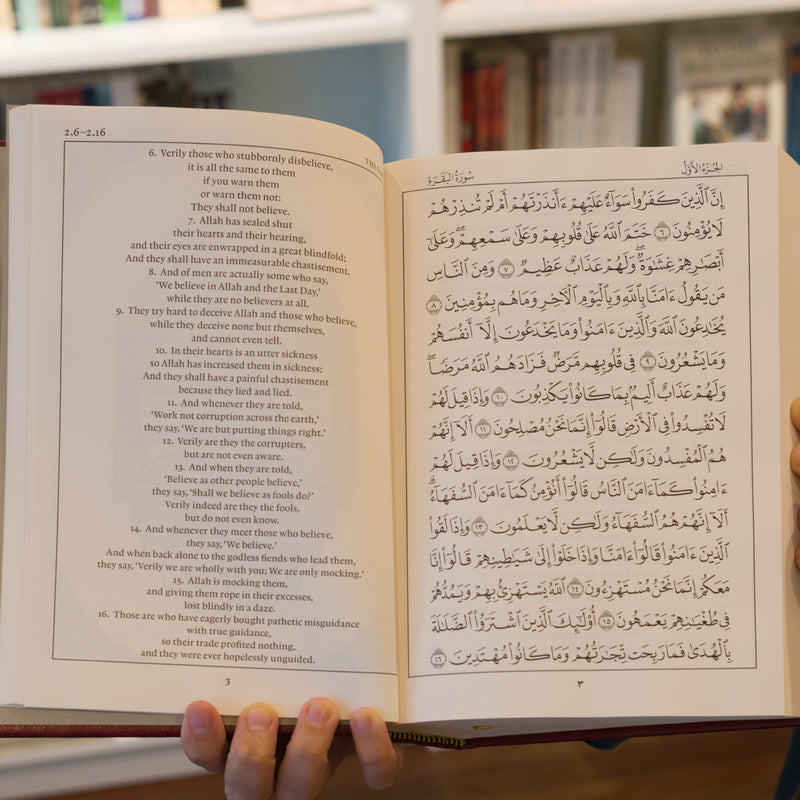 2.6–2.16
6. Verily those who stubbornly disbelieve,
it is all the same to them
if you warn them
or warn them not:
They shall not believe.
7. Allah has sealed shut
their hearts and their hearing,
and their eyes are enwrapped in a great blindfold;
And they shall have an immeasurable chastisement.
8. And of men are actually some who say,
‘We believe in Allah and the Last Day,’
while they are no believers at all.
9. They try hard to deceive Allah and those who believe,
while they deceive none but themselves,
and cannot even tell.
10. In their hearts is an utter sickness
so Allah has increased them in sickness;
And they shall have a painful chastisement
because they lied and lied.
11. And whenever they are told,
‘Work not corruption across the earth,’
they say, ‘We are but putting things right.’
12. Verily are they the corrupters,
but are not even aware.
13. And when they are told,
‘Believe as other people believe,’
they say, ‘Shall we believe as fools do?’
Verily indeed are they the fools,
but do not even know.
14. And whenever they meet those who believe,
they say, ‘We believe.’
And when back alone to the godless fiends who lead them,
they say, ‘Verily we are wholly with you; We are only mocking.’
15. Allah is mocking them,
and giving them rope in their excesses,
lost blindly in a daze.
16. Those are who have eagerly bought pathetic misguidance
with true guidance,
so their trade profited nothing,
and they were ever hopelessly unguided.
3
الجُزْءُ الأَوَّلُ
سُورَةُ البَقَرَةِ
إِنَّ ٱلَّذِينَ كَفَرُواْ سَوَآءٌ عَلَيْهِمْ ءَأَنذَرْتَهُمْ أَمْ لَمْ تُنذِرْهُمْ
لَا يُؤْمِنُونَ ٦ خَتَمَ ٱللَّهُ عَلَىٰ قُلُوبِهِمْ وَعَلَىٰ سَمْعِهِمْۖ وَعَلَىٰٓ
أَبْصَٰرِهِمْ غِشَٰوَةٌۖ وَلَهُمْ عَذَابٌ عَظِيمٌ ٧ وَمِنَ ٱلنَّاسِ
مَن يَقُولُ ءَامَنَّا بِٱللَّهِ وَبِٱلْيَوْمِ ٱلْأَخِرِ وَمَا هُم بِمُؤْمِنِينَ ٨
يُخَٰدِعُونَ ٱللَّهَ وَٱلَّذِينَ ءَامَنُواْ وَمَا يَخْدَعُونَ إِلَّآ أَنفُسَهُمْ
وَمَا يَشْعُرُونَ ٩ فِي قُلُوبِهِم مَّرَضٌ فَزَادَهُمُ ٱللَّهُ مَرَضًاۖ
وَلَهُمْ عَذَابٌ أَلِيمٌۢ بِمَا كَانُواْ يَكْذِبُونَ ١٠ وَإِذَا قِيلَ لَهُمْ
لَا تُفْسِدُواْ فِي ٱلْأَرْضِ قَالُوٓاْ إِنَّمَا نَحْنُ مُصْلِحُونَ ١١ أَلَآ إِنَّهُمْ
هُمُ ٱلْمُفْسِدُونَ وَلَٰكِن لَّا يَشْعُرُونَ ١٢ وَإِذَا قِيلَ لَهُمْ
ءَامِنُواْ كَمَآ ءَامَنَ ٱلنَّاسُ قَالُوٓاْ أَنُؤْمِنُ كَمَآ ءَامَنَ ٱلسُّفَهَآءُۗ
أَلَآ إِنَّهُمْ هُمُ ٱلسُّفَهَآءُ وَلَٰكِن لَّا يَعْلَمُونَ ١٣ وَإِذَا لَقُواْ
ٱلَّذِينَ ءَامَنُواْ قَالُوٓاْ ءَامَنَّا وَإِذَا خَلَوْاْ إِلَىٰ شَيَٰطِينِهِمْ قَالُوٓاْ إِنَّا
مَعَكُمْ إِنَّمَا نَحْنُ مُسْتَهْزِءُونَ ١٤ ٱللَّهُ يَسْتَهْزِئُ بِهِمْ وَيَمُدُّهُمْ
فِي طُغْيَٰنِهِمْ يَعْمَهُونَ ١٥ أُوْلَٰٓئِكَ ٱلَّذِينَ ٱشْتَرَوُاْ ٱلضَّلَٰلَةَ
بِٱلْهُدَىٰ فَمَا رَبِحَت تِّجَٰرَتُهُمْ وَمَا كَانُواْ مُهْتَدِينَ ١٦
٣